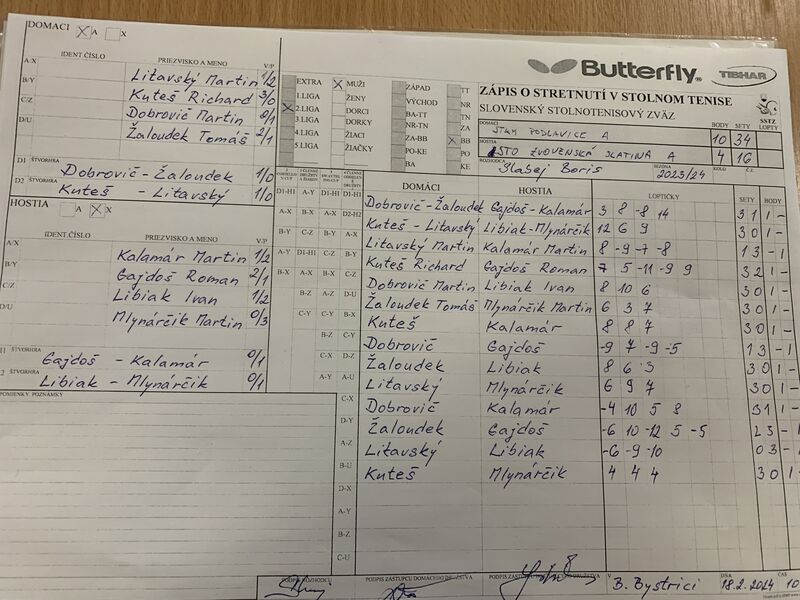 DOMACI X A X
IDENT.ČÍSLO PRIEZVISKO A MENO V/P
A/X Litavský Martin 1/2
B/Y Kuteš Richard 3/0
C/Z Dobrovič Martin
D/U Žaloudek Tomáš 2/1
D1 ŠTVORHRA Dobrovič - Žaloudek 1/0
D2 ŠTVORHRA Kuteš - Litavský 1/0
HOSTIA A X X
IDENT.ČÍSLO PRIEZVISKO A MENO V/P
A/X Kalamár Martin 1/2
B/Y Gajdoš Roman 2/1
C/Z Libiak Ivan 1/2
D/U Mlynárčik Martin 0/3
ŠTVORHRA Gajdoš - Kalamár 0/1
ŠTVORHRA Libiak - Mlynárčik 0/1
POZNÁMKY
EXTRA X MUŽI ZÁPAD TT
1.LIGA ŽENY VÝCHOD NR
X 2.LIGA DORCI BA-TT TN
3.LIGA DORKY NR-TN ZA
4.LIGA ŽIACI ZA-BB X BB
5.LIGA ŽIAČKY PO-KE PO
BA KE
Butterfly TIBHAR
ZÁPIS O STRETNUTÍ V STOLNOM TENISE
SLOVENSKÝ STOLNOTENISOVÝ ZVÄZ
SSTZ
BODY SETY LOPTY
DOMÁCI STKM PODLAVICE A 10 34
HOSTIA STO ZVOLENSKÁ SLATINA A 4 16
ROZHODCA Slabej Boris SEZÓNA 2023/24 KOLO Č.Z.
DOMÁCI HOSTIA LOPTIČKY SETY BODY
D1-H1 A-Y D1-H1 D1-H1 Dobrovič - Žaloudek Gajdoš - Kalamár 3 8 -8 14 3 1 1 -
A-X B-X A-X D2-H2 Kuteš - Litavský Libiak - Mlynárčik 12 6 9 3 0 1 -
B-Y C-Z B-Y A-X Litavský Martin Kalamár Martin 8 -9 -7 -8 1 3 - 1
A-Y D1-H1 C-Z B-Y Kuteš Richard Gajdoš Roman 7 5 -11 -9 9 3 2 1 -
B-X A-X B-X C-Z Dobrovič Martin Libiak Ivan 8 10 6 3 0 1 -
B-Z A-Z D-U Žaloudek Tomáš Mlynárčik Martin 6 3 7 3 0 1 -
C-Y C-Y B-X Kuteš Kalamár 8 8 7 3 0 1 -
B-Z C-Y Dobrovič Gajdoš -9 7 -9 -5 1 3 - 1
C-X D-Z Žaloudek Libiak 8 6 3 3 0 1 -
A-Y A-U Litavský Mlynárčik 6 9 7 3 0 1 -
C-X Dobrovič Kalamár -4 10 5 8 3 1 1 -
D-Y Žaloudek Gajdoš -6 10 -12 5 -5 2 3 - 1
A-Z Litavský Libiak -6 -9 -10 0 3 - 1
B-U Kuteš Mlynárčik 4 4 4 3 0 1 -
D-X
A-Y
B-Z
C-U
PODPIS ROZHODCU PODPIS ZÁSTUPCU DOMÁCEHO DRUŽSTVA V B. Bystrici DŇA 18.2.2024 ČAS 10